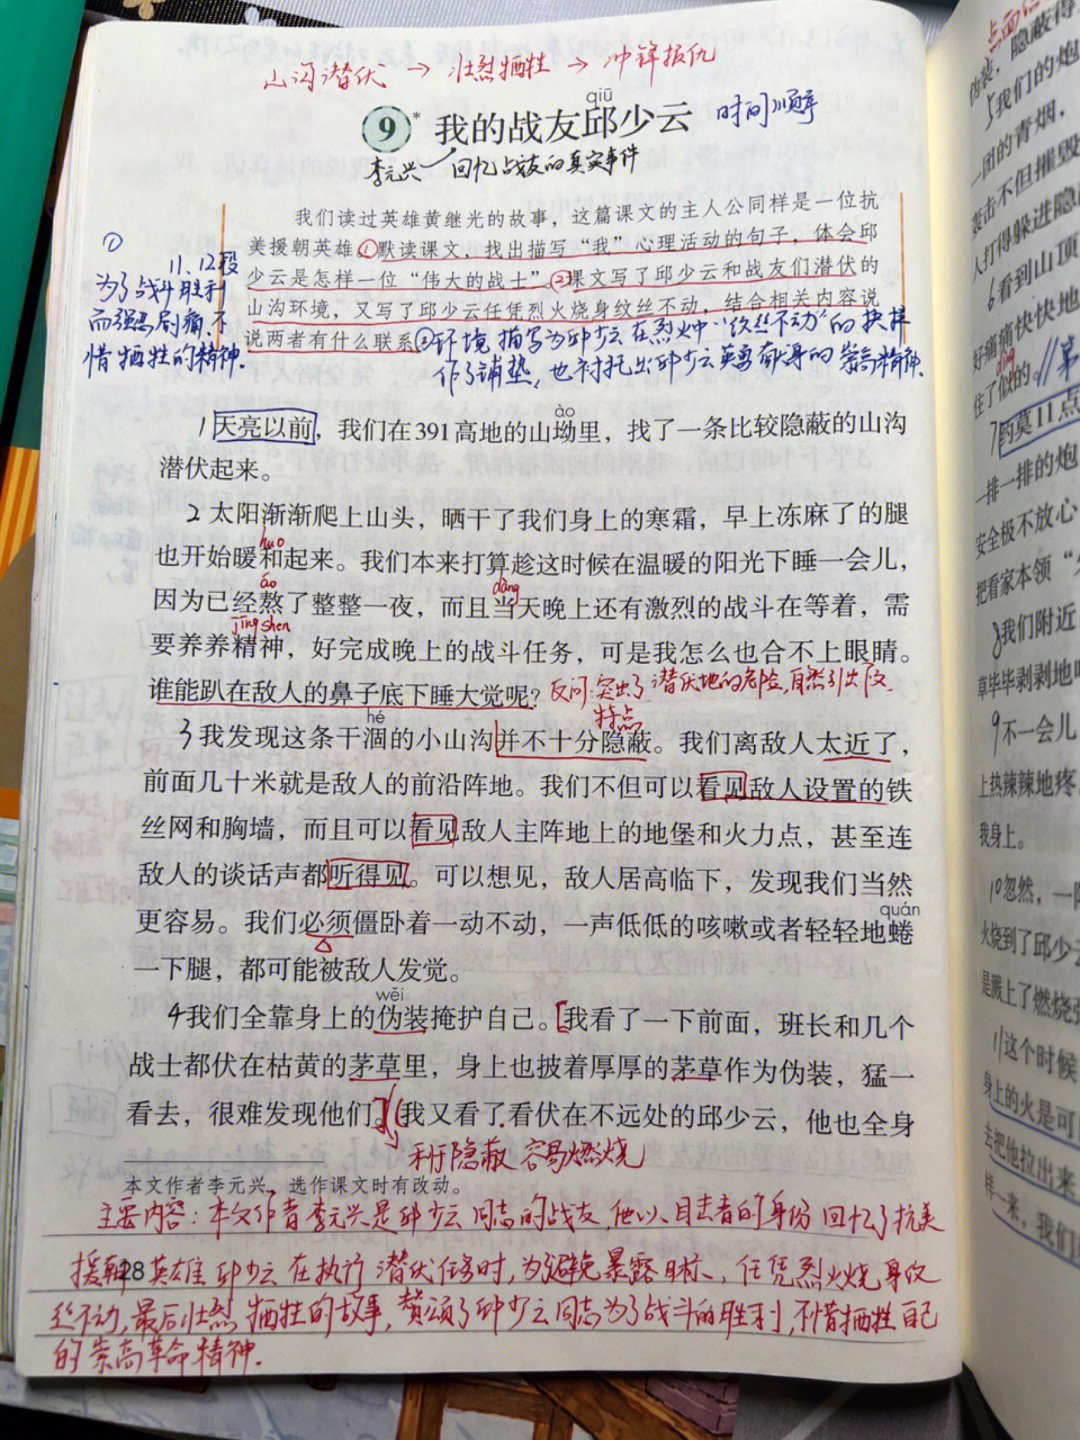 山沟潜伏 → 壮烈牺牲 → 冲锋报仇
qiū
9* 我的战友邱少云 时间顺序
李元兴 回忆战友的真实事件
我们读过英雄黄继光的故事，这篇课文的主人公同样是一位抗
美援朝英雄①默读课文，找出描写“我”心理活动的句子，体会邱
少云是怎样一位“伟大的战士”②课文写了邱少云和战友们潜伏的
山沟环境，又写了邱少云任凭烈火烧身纹丝不动，结合相关内容说
说两者有什么联系
②环境描写为邱少云在烈火中“纹丝不动”的抉择
作了铺垫，也衬托出邱少云英勇献身的崇高精神.
①
11、12段
为了战斗胜利
而强忍剧痛、不
惜牺牲的精神.
ào
1 天亮以前，我们在391高地的山坳里，找了一条比较隐蔽的山沟
潜伏起来。
2 太阳渐渐爬上山头，晒干了我们身上的寒霜，早上冻麻了的腿
huo
也开始暖和起来。我们本来打算趁这时候在温暖的阳光下睡一会儿，
áo dàng
因为已经熬了整整一夜，而且当天晚上还有激烈的战斗在等着，需
jīng shen
要养养精神，好完成晚上的战斗任务，可是我怎么也合不上眼睛。
谁能趴在敌人的鼻子底下睡大觉呢？ 反问：突出了潜伏地的危险，自然引出下文.
特点
hé
3 我发现这条干涸的小山沟并不十分隐蔽。我们离敌人太近了，
前面几十米就是敌人的前沿阵地。我们不但可以看见敌人设置的铁
丝网和胸墙，而且可以看见敌人主阵地上的地堡和火力点，甚至连
敌人的谈话声都听得见。可以想见，敌人居高临下，发现我们当然
更容易。我们必须僵卧着一动不动，一声低低的咳嗽或者轻轻地蜷
quán
一下腿，都可能被敌人发觉。
wěi
4 我们全靠身上的伪装掩护自己。[我看了一下前面，班长和几个
战士都伏在枯黄的茅草里，身上也披着厚厚的茅草作为伪装，猛一
看去，很难发现他们。](我又看了看伏在不远处的邱少云，他也全身
利于隐蔽 容易燃烧
本文作者李元兴，选作课文时有改动。
主要内容：本文作者李元兴是邱少云同志的战友，他以目击者的身份回忆了抗美
援朝英雄邱少云在执行潜伏任务时，为了避免暴露目标，任凭烈火烧身纹
丝不动，最后壮烈牺牲的故事，赞颂了邱少云同志为了战斗的胜利，不惜牺牲自己
的崇高革命精神.
28
点面
伪装，隐蔽得
5 我们的炮
一团的青烟，
袭击不但摧毁
人打得躲进隐
6 看到山顶
好痛痛快快地
住了似的。//第
7 约莫11点
一排一排的炮
安全极不放心
把看家本领“
8 我们附近
草毕毕剥剥地
9 不一会儿
上热辣辣地疼
我身上。
10 忽然，一阵
火烧到了邱少云
是溅上了燃烧弹
11 这个时候
身上的火是可
去把他拉出来
样一来，我们